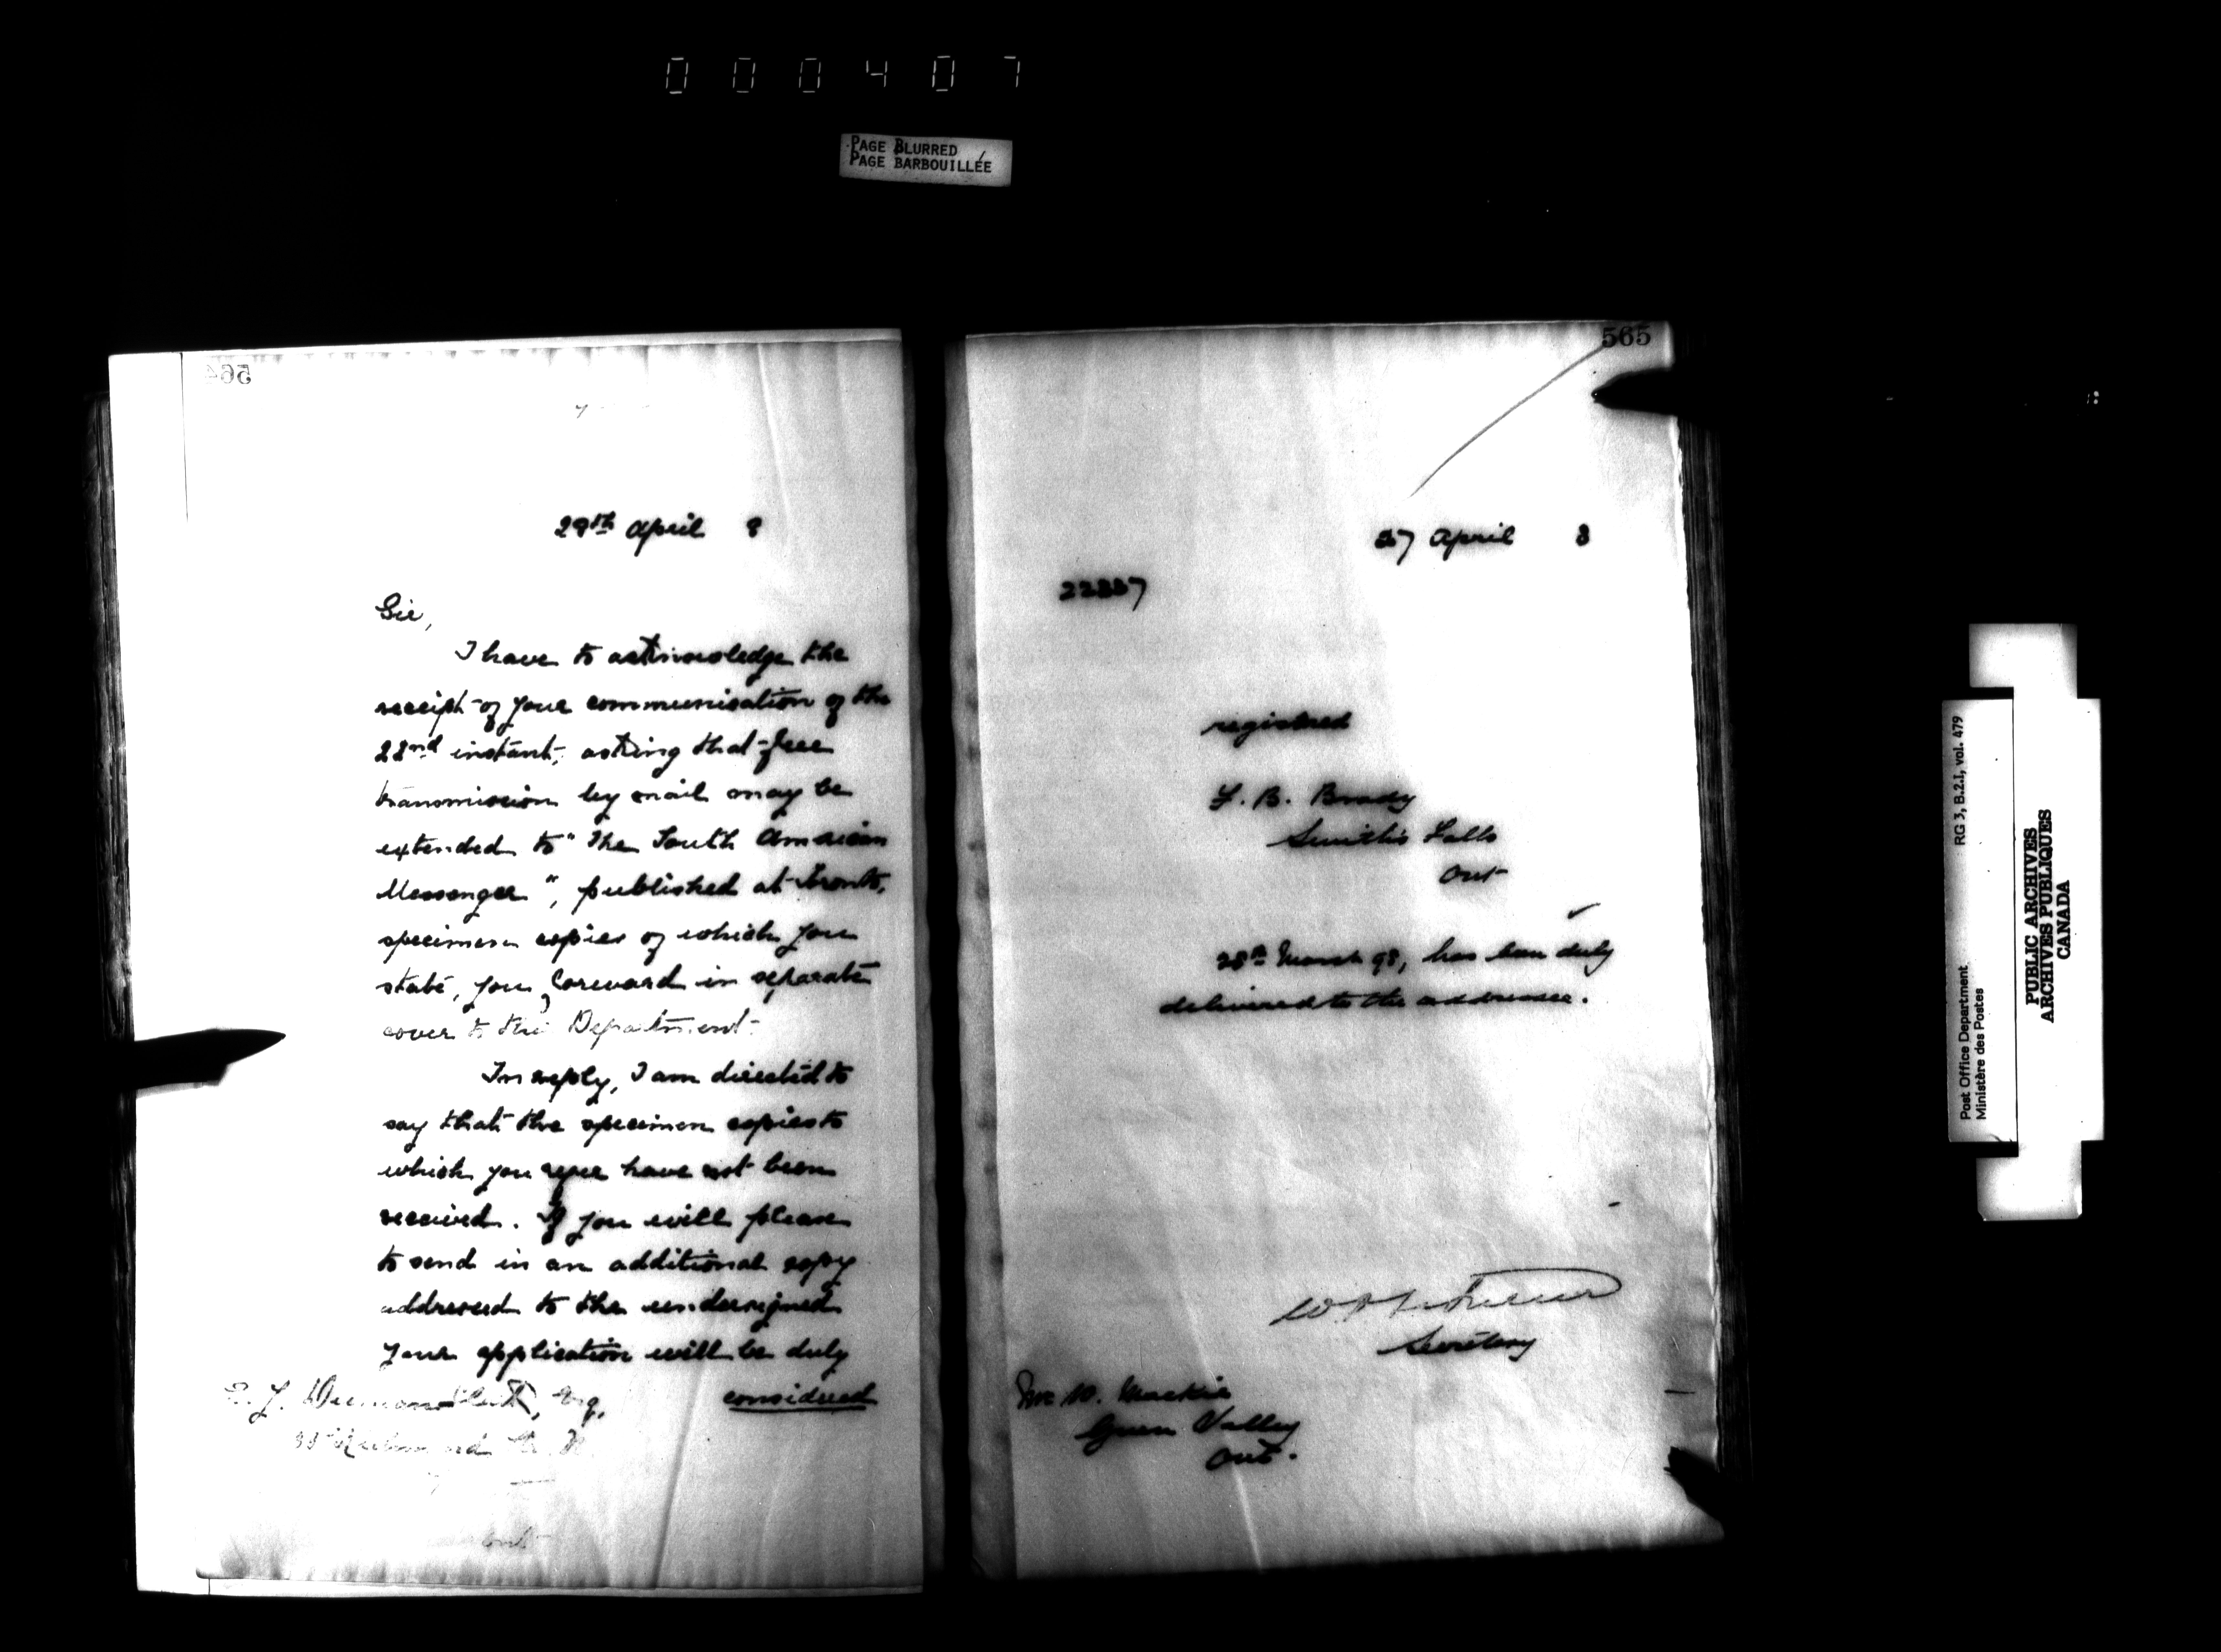 000407
PAGE BLURRED
PAGE BARBOUILLÉE
564
29th April 8
Sir,
I have to acknowledge the
receipt of your communication of the
22nd instant, asking that free
transmission by mail may be
extended to "The South American
Messenger", published at Toronto,
specimen copies of which you
state, you forward in separate
cover to this Department.
In reply, I am directed to
say that the specimen copies to
which you refer have not been
received. If you will please
to send in an additional copy
addressed to the undersigned
your application will be duly
considered
Esq,
565
27 April 8
22337
registered
F. B. Brady
Smith's Falls
Ont
28th March 98, has been duly
delivered to the addressee.
Secretary
Mackie
Green Valley
Ont.
RG 3, B.2.I, vol. 479
Post Office Department
Ministère des Postes
PUBLIC ARCHIVES
ARCHIVES PUBLIQUES
CANADA